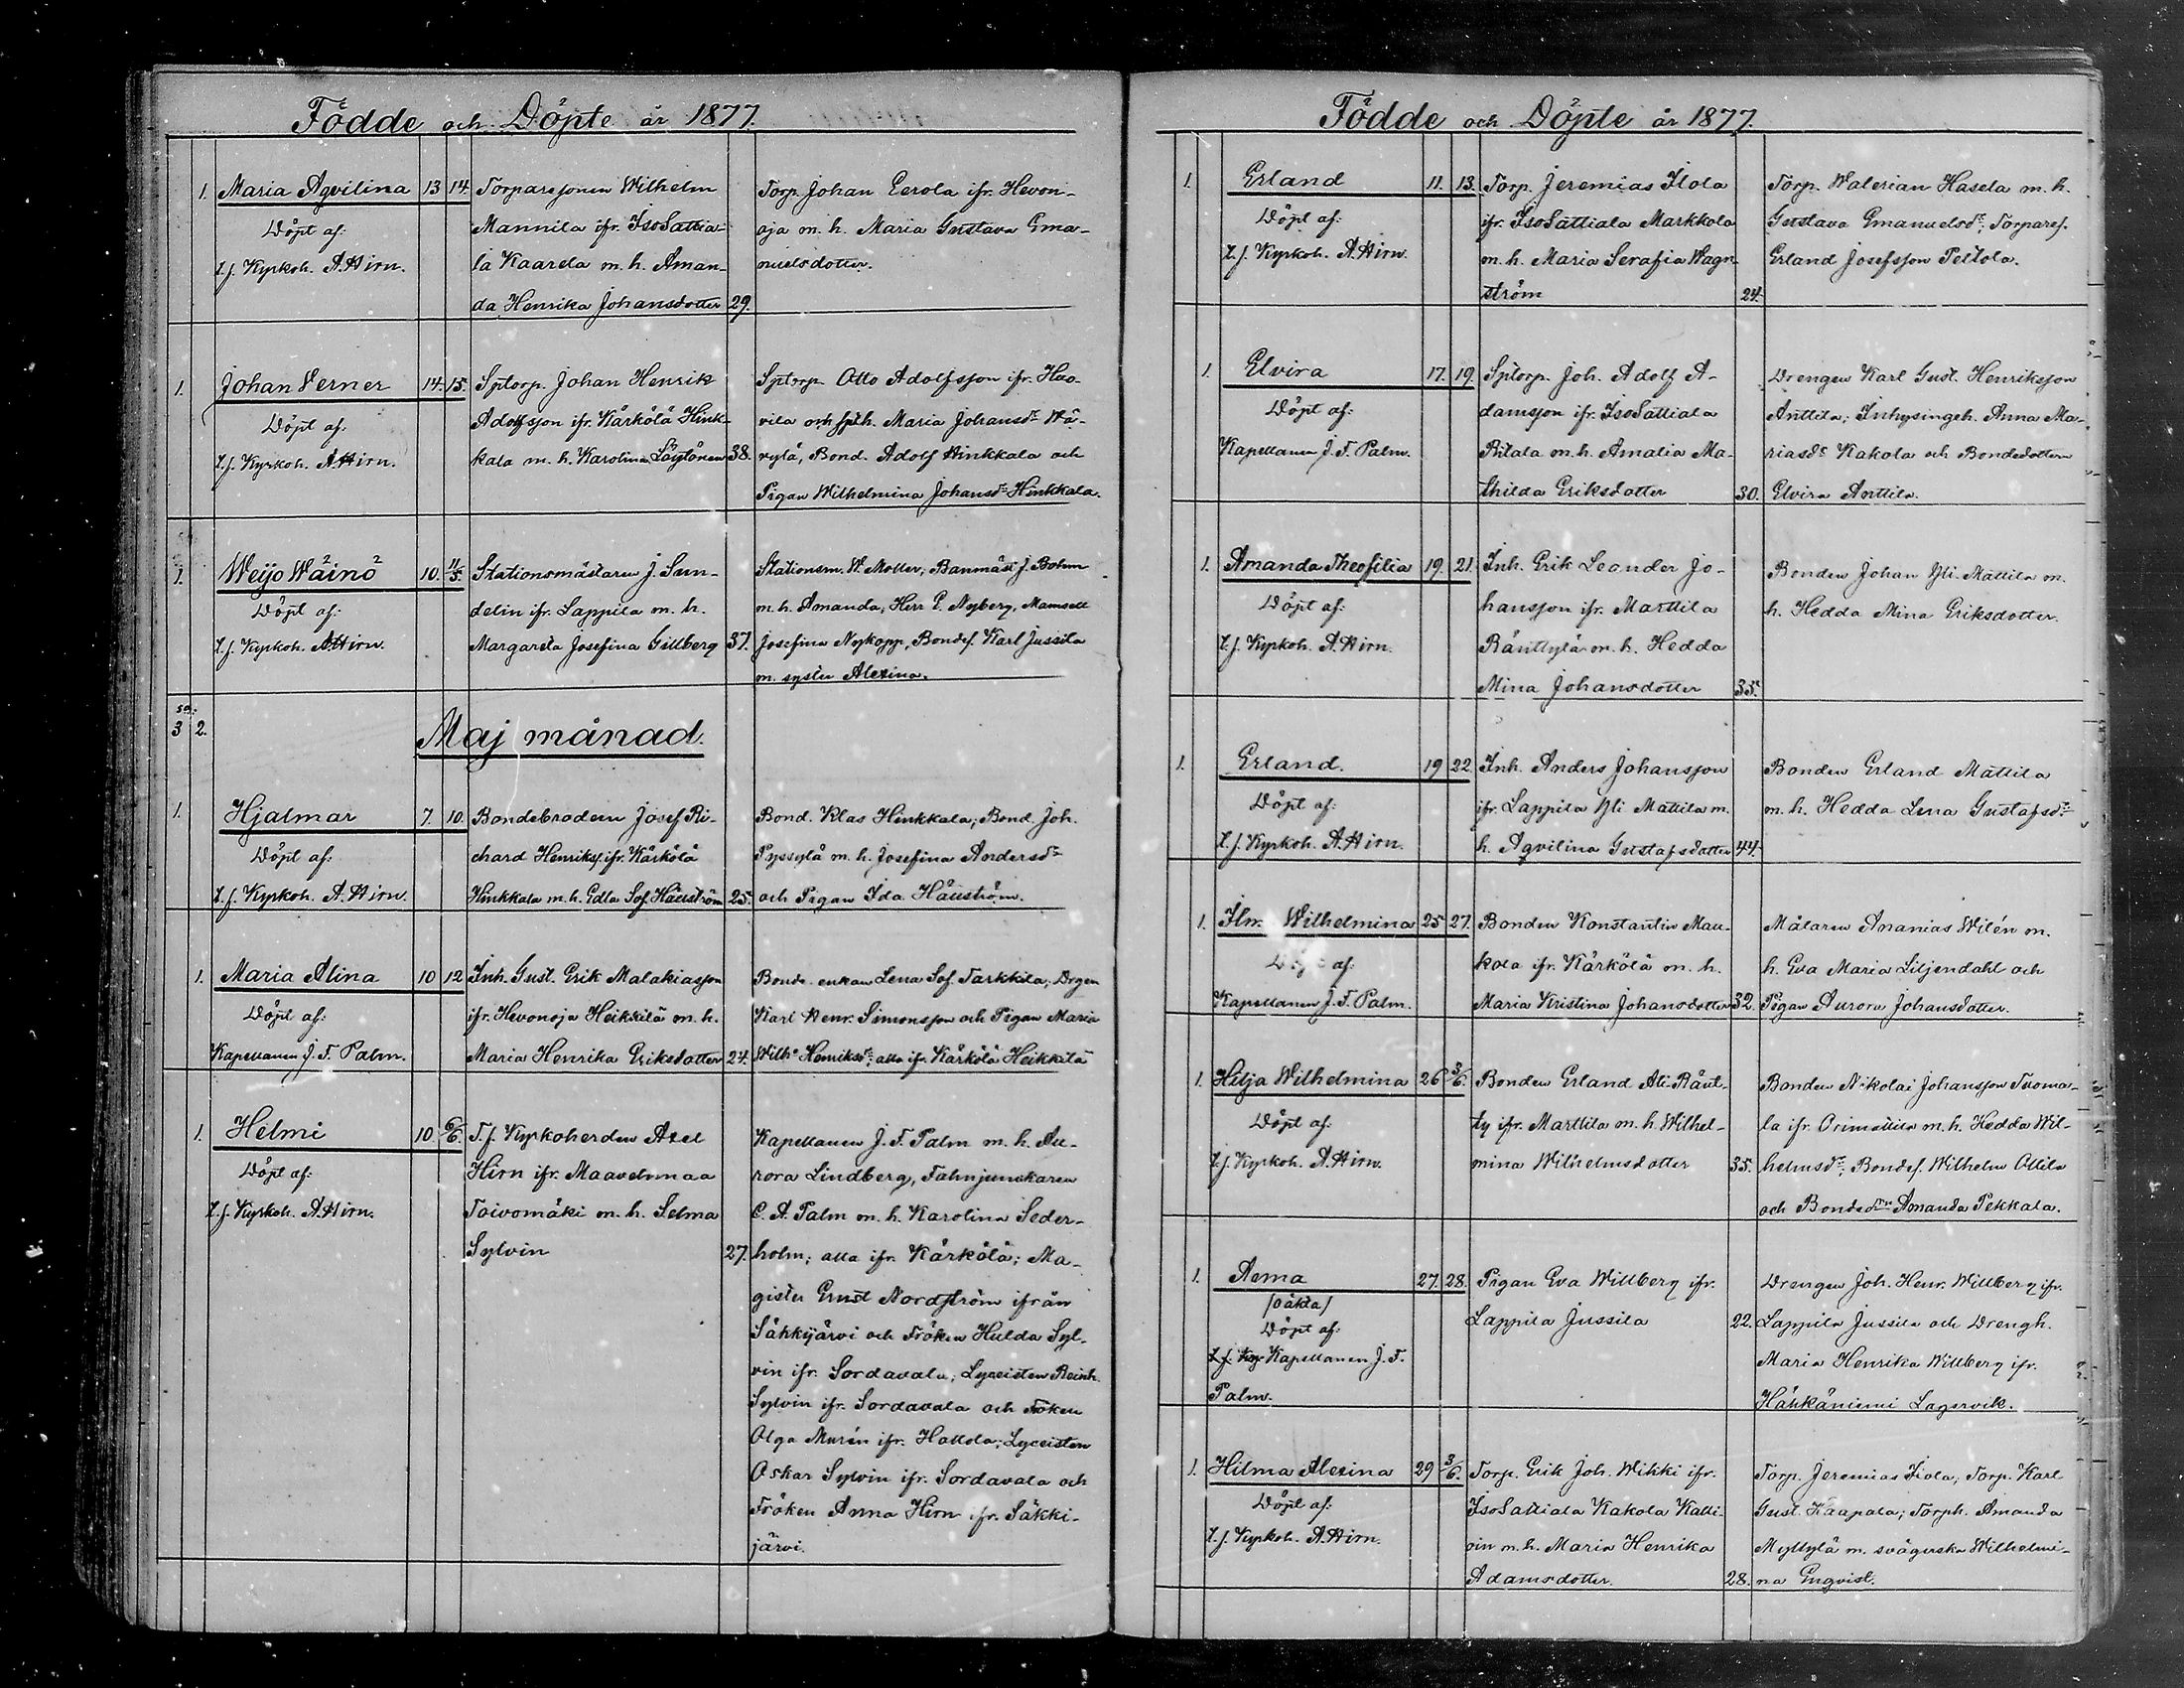 Födde och Döpte år 1877.
1. Maria Aqvilina 13 14. Torparesonen Wilhelm Torp. Johan Eerola ifr. Hevon-
Döpt af: Mannila ifr. IsoSattia- oja m. h. Maria Gustava Ema-
t.f. Kyrkoh. A. Hirn. la Kaarela m. h. Aman- nuelsdotter.
da Henrika Johansdotter 29.
1. Johan Verner 14. 15. Sptorp. Johan Henrik Sptorp. Otto Adolfsson ifr. Huo-
Döpt af: Adolfsson ifr. Kärkölä Hink- vila och Maria Johansdr Wä-
t.f. Kyrkoh. A. Hirn. kala m. h. Karolina Löytänen 38. rylä, Bond. Adolf Hinkkala och
Pigan Wilhelmina Johansdr Hinkkala.
1. Weijo Wäinö 10. 11/5. Stationsmästaren J. Sun- Stationsm. W. Moller; Banmäst J. Bohm
Döpt af: delin ifr. Lappila m. h. m. h. Amanda, Herr E. Nyberg, Mamsell
t.f. Kyrkoh. A. Hirn. Margareta Josefina Gillberg 37. Josefina Nykopp, Bondes. Karl Jussila
m. syster Alexina.
sa:
3 2. Maj månad.
1. Hjalmar 7. 10. Bondebrodern Josef Ri- Bond. Klas Hinkkala; Bond. Joh.
Döpt af: chard Henrikss. ifr. Kärkölä Pyssylä m. h. Josefina Andersdr
t.f. Kyrkoh. A. Hirn. Hinkkala m. h. Edla Sof. Häuström 25. och Pigan Ida Häuström.
1. Maria Alina 10 12 Inh. Gust. Erik Malakiasson Bonde enkan Lena Sof. Tarkkila; Drgen
Döpt af: ifr. Hevonoja Heikkilä m. h. Karl Henr. Simonsson och Pigan Maria
Kapellanen J. F. Palm. Maria Henrika Eriksdotter 24. Wilh. Henriksdr; alla ifr. Kärkölä Heikkilä
1. Helmi 10 6/6. T.f. Kyrkoherden Axel Kapellanen J. F. Palm m. h. Au-
Döpt af: Hirn ifr. Maavehmaa rora Lindberg, Fahnjunkaren
t.f. Kyrkoh. A. Hirn. Toivomäki m. h. Selma C. A. Palm m. h. Karolina Seder-
Sylvin 27. holm; alla ifr. Kärkölä; Ma-
gister Ernst Nordström ifrån
Säkkijärvi och Fröken Hulda Syl-
vin ifr. Sordavala; Lyceisten Reinh.
Sylvin ifr. Sordavala och Fröken
Olga Murén ifr. Hollola; Lyceisten
Oskar Sylvin ifr. Sordavala och
Fröken Anna Hirn ifr. Säkki-
järvi.
Födde och Döpte år 1877.
1. Erland 11. 13. Torp. Jeremias Ilola Torp. Walerian Hasela m. h.
Döpt af: ifr. IsoSattiala Markkola Gustava Emanuelsdr; Torpares.
t.f. Kyrkoh. A. Hirn. m. h. Maria Serafia Wagn- Erland Josefsson Peltola.
ström 24.
1. Elvira 17. 19. Sptorp. Joh. Adolf A- Drengen Karl Gust. Henriksson
Döpt af: damsson ifr. IsoSattiala Anttila; Inhysingeh. Anna Ma-
Kapellanen J. F. Palm. Ritala m. h. Amalia Ma- riasdr Kakola och Bondedottern
thilda Eriksdotter 30. Elvira Anttila.
1. Amanda Theofilia 19. 21. Inh. Erik Leander Jo- Bonden Johan Yli-Mattila m.
Döpt af: hansson ifr. Marttila h. Hedda Mina Eriksdotter.
t.f. Kyrkoh. A. Hirn. Ränttylä m. h. Hedda
Mina Johansdotter 35.
1. Erland. 19 22. Inh. Anders Johansson Bonden Erland Mattila
Döpt af: ifr. Lappila Yli Mattila m. m. h. Hedda Lena Gustafsdr
t.f. Kyrkoh. A. Hirn. h. Aqvilina Gustafsdotter 44.
1. Wilhelmina 25 27. Bonden Konstantin Mau- Målaren Ananias Wilén m.
Döpt af: kola ifr. Kärkölä m. h. h. Eva Maria Liljendahl och
Kapellanen J. F. Palm. Maria Kristina Johansdotter 32. Pigan Aurora Johansdotter.
1. Hilja Wilhelmina 26 3/6. Bonden Erland Ali-Ränt- Bonden Nikolai Johansson Tuoma-
Döpt af: ty ifr. Marttila m. h. Wilhel- la ifr. Orimattila m. h. Hedda Wil-
t.f. Kyrkoh. A. Hirn. mina Wilhelmsdotter 35. helmsdr; Bondes. Wilhelm Ollila
och Bonde Amanda Pekkala.
1. Aema 27. 28. Pigan Eva Willberg ifr. Drengen Joh. Henr. Willberg ifr.
/oäkta/ Lappila Jussila 22. Lappila Jussila och Drengh.
Döpt af: Maria Henrika Willberg ifr.
t.f. Ky Kapellanen J. F. Hähkäniemi Lagervik.
Palm.
1. Hilma Alexina 29 3/6. Torp. Erik Joh. Wihki ifr. Torp. Jeremias Ilola; Torp. Karl
Döpt af: IsoSattiala Kakola Kalli- Gust. Kaapala; Torph. Amanda
t.f. Kyrkoh. A. Hirn. oin m. h. Maria Henrika Myllylä m. svägerska Wilhelmi-
Adamsdotter. 28. na Engvist.